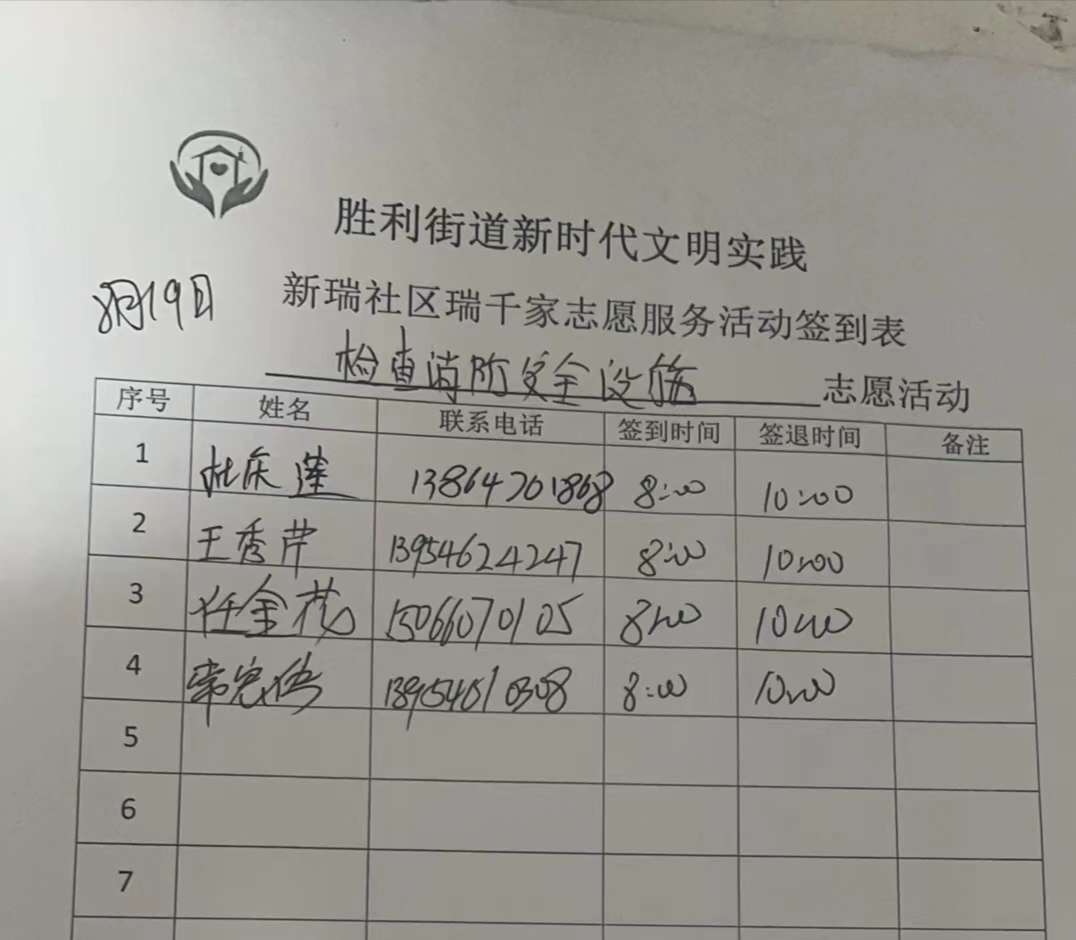 胜利街道新时代文明实践
8月19日 新瑞社区瑞千家志愿服务活动签到表
检查消防安全设施 志愿活动
序号 姓名 联系电话 签到时间 签退时间 备注
1 杜庆莲 13864701868 8:00 10:00
2 王秀芹 13954624247 8:00 10:00
3 任金花 15066070105 8:00 10:00
4 8:00 10:00
5
6
7